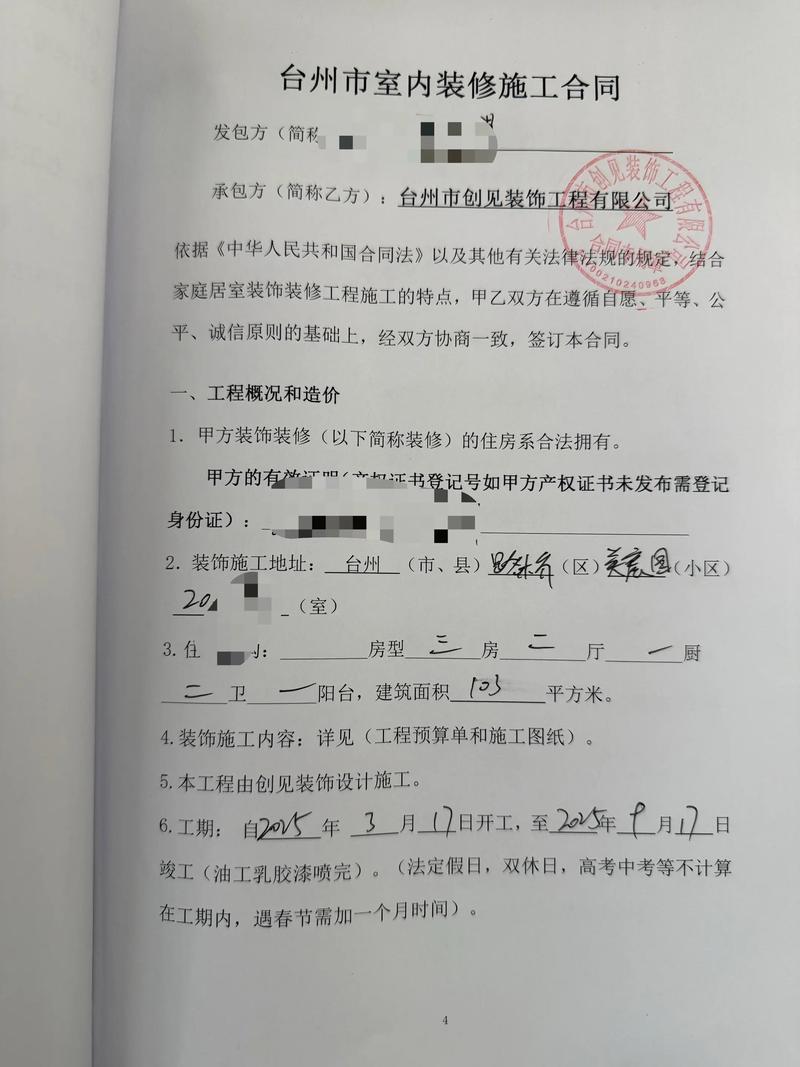 台州市室内装修施工合同
发包方（简称
承包方（简称乙方）：台州市创见装饰工程有限公司
台州市创见装饰工程有限公司
依据《中华人民共和国合同法》以及其他有关法律法规的规定，结合
家庭居室装饰装修工程施工的特点，甲乙双方在遵循自愿、平等、公
平、诚信原则的基础上，经双方协商一致，签订本合同。
一、工程概况和造价
1. 甲方装饰装修（以下简称装修）的住房系合法拥有。
甲方的有效证明（产权证书登记号如甲方产权证书未发布需登记
身份证）：
2. 装饰施工地址：台州（市、县）（区）（小区）
20（室）
3. 住：房型三房二厅一厨
二卫一阳台，建筑面积103平方米。
4.装饰施工内容：详见（工程预算单和施工图纸）。
5.本工程由创见装饰设计施工。
6.工期：自2025年3月17日开工，至2025年9月17日
竣工（油工乳胶漆喷完）。（法定假日，双休日，高考中考等不计算
在工期内，遇春节需加一个月时间）。
4